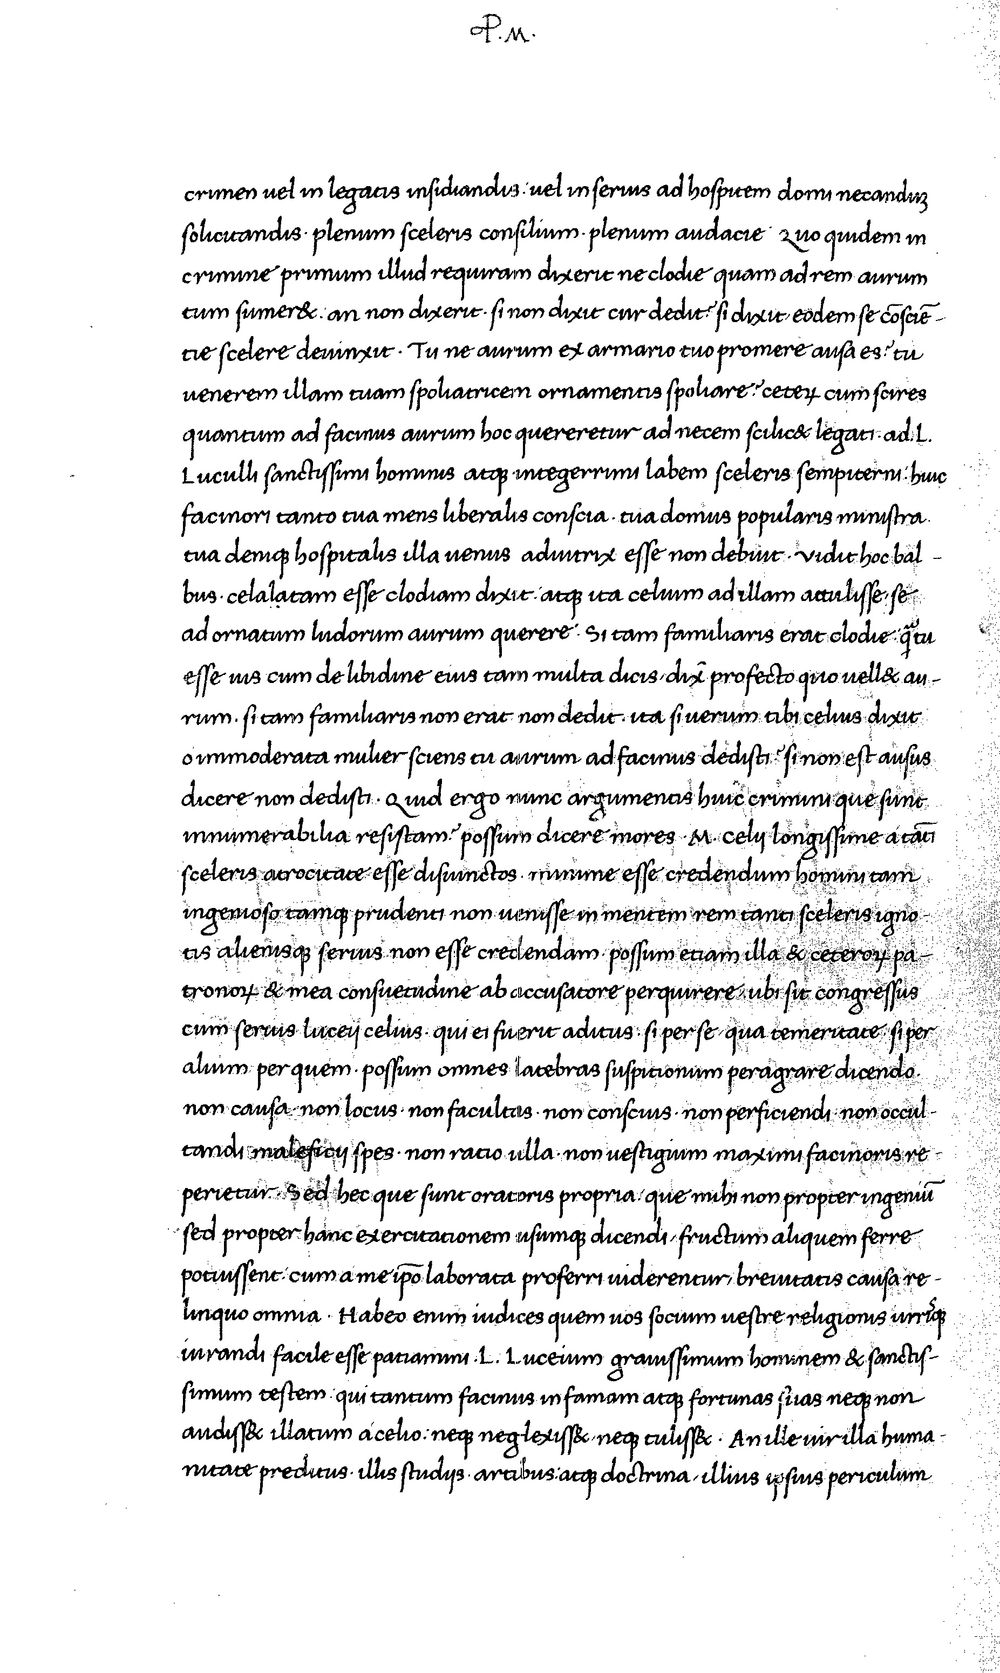 P. M.
crimen uel in legatis insidiandis: uel in seruis ad hospitem domi necanduꝫ
solicitandis· plenum sceleris consilium· plenum audacie· Quo quidem in
crimine primum illud requiram dixerit ne clodie quam ad rem aurum
tum sumer&: an non dixerit· si non dixit cur dedit? si dixit eodem se cōsciē-
tie scelere deuinxit· Tu ne aurum ex armario tuo promere ausa es? tu
uenerem illam tuam spoliatricem ornamentis spoliare? ceteꝝ cum scires
quantum ad facinus aurum hoc quereretur ad necem scilic& legati· ad L.
Luculli sanctissimi hominis atqꝫ integerrimi labem sceleris sempiterni: huic
facinori tanto tua mens liberalis conscia· tua domus popularis ministra·
tua deniqꝫ hospitalis illa uenus adiutrix esse non debuit· Vidit hoc bal-
bus· celalatam esse clodiam dixit· atqꝫ ita celium ad illam attulisse, se
ad ornatum ludorum aurum querere· Si tam familiaris erat clodie q̃ tu
esse uis cum de libidine eius tam multa dicis, dix̃ profecto quo uell& au-
rum· si tam familiaris non erat non dedit· ita si uerum tibi celius dixit
o immoderata mulier sciens tu aurum ad facinus dedisti? si non est ausus
dicere non dedisti· Quid ergo nunc argumentis huic crimini que sunt
innumerabilia resistam? possum dicere mores M. Celij longissime a tāti
sceleris atrocitate esse disiunctos· minime esse credendum homini tam
ingenioso tamqꝫ prudenti non uenisse in mentem rem tanti sceleris igno-
tis alienisqꝫ seruis non esse credendam· possum etiam illa & ceteroꝝ pa-
tronoꝝ & mea consuetudine ab accusatore perquirere· ubi sit congressus
cum seruis luceij celius· qui ei fuerit aditus· si per se qua temeritate· si per
alium per quem· possum omnes latebras suspitionum peragrare dicendo·
non causa· non locus· non facultas· non conscius· non perficiendi non occul-
tandi maleficij spes· non ratio ulla· non uestigium maximi facinoris re-
perietur· Sed hec que sunt oratoris propria: que mihi non propter ingeniū
sed propter hanc exercitationem usumqꝫ dicendi, fructum aliquem ferre
potuissent: cum a me ip̄o laborata proferri uiderentur, breuitatis causa re-
linquo omnia· Habeo enim iudices quem uos socium uestre religionis iurisqꝫ
iurandi facile esse patiamini· L. Luceium grauissimum hominem & sanctis-
simum testem· qui tantum facinus in famam atqꝫ fortunas suas neqꝫ non
audiss& illatum a celio: neqꝫ neglexiss& neqꝫ tuliss&· An ille uir illa huma-
nitate preditus· illis studijs· artibus atqꝫ doctrina, illius ipsius periculum